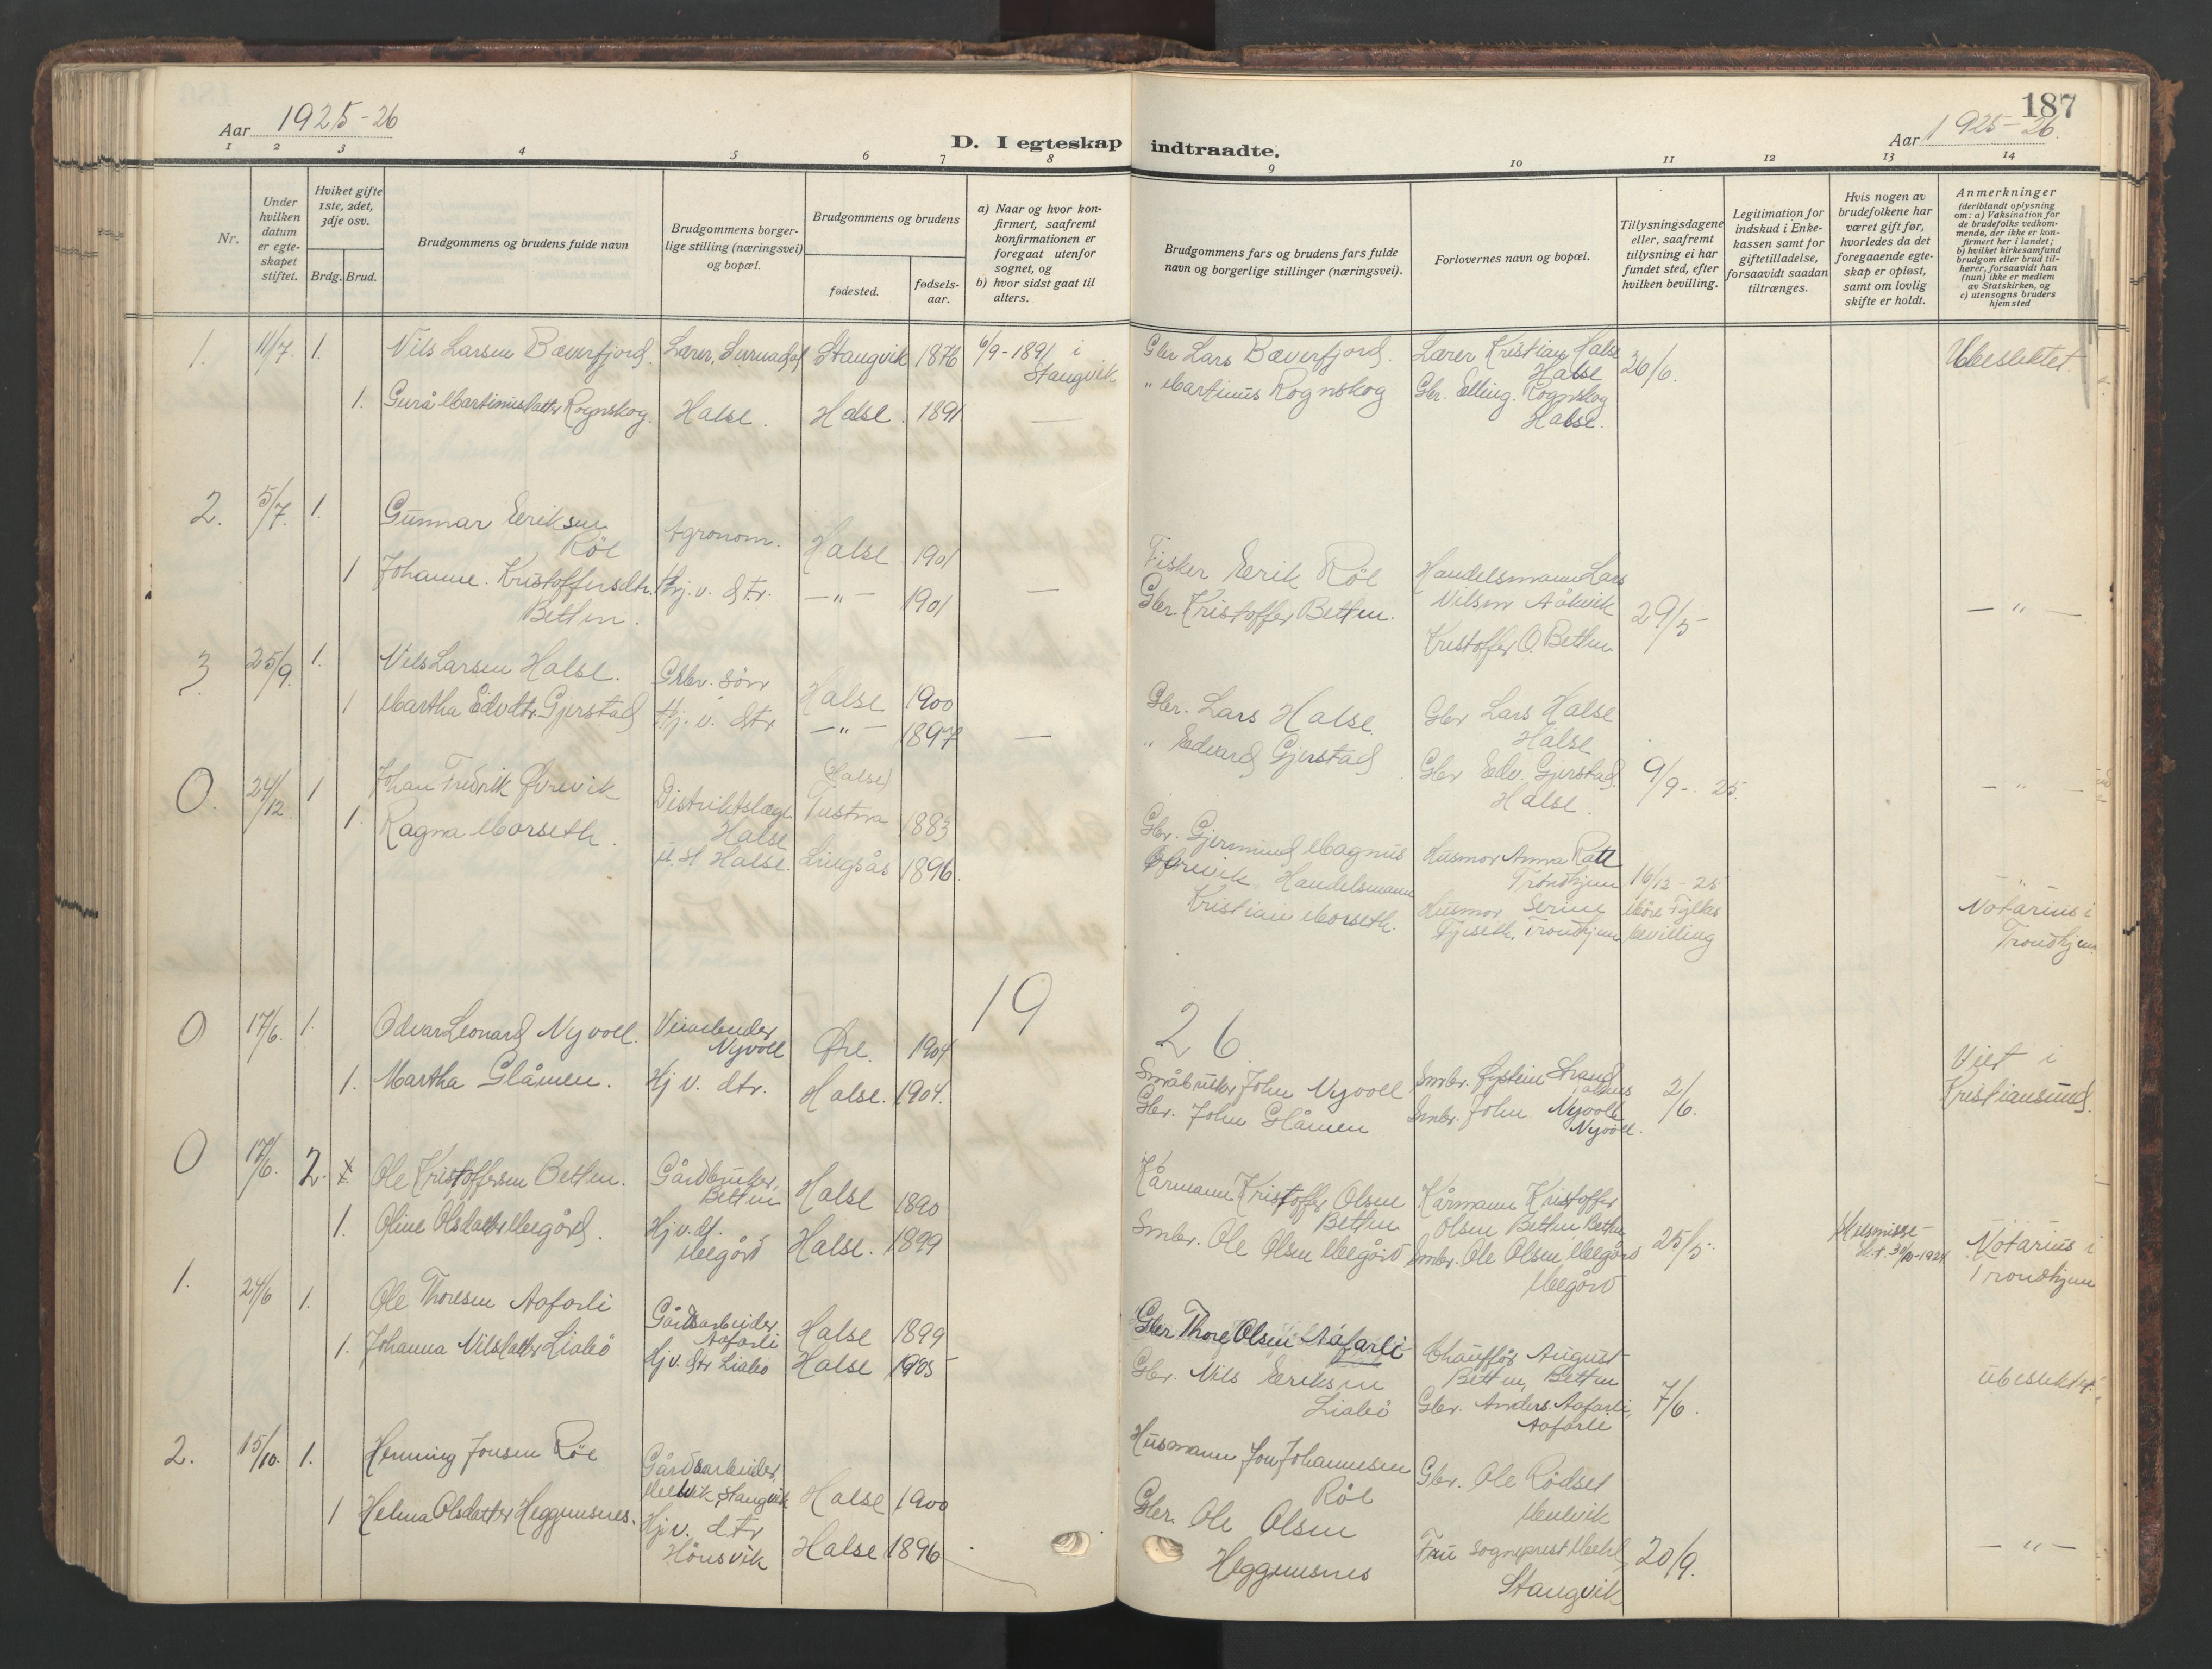 187
Aar 1925-26
D. I egteskap indtraadte.
Aar 1925-26.
1 2 3 4 5 6 7 8 9 10 11 12 13 14
Nr.
Under hvilken datum er egteskapet stiftet.
Hvilket gifte 1ste, 2det, 3dje osv.
Brdg. Brud.
Brudgommens og brudens fulde navn
Brudgommens borgerlige stilling (næringsvei) og bopæl.
Brudgommens og brudens
fødested.
fødsels-aar.
a) Naar og hvor konfirmert, saafremt konfirmationen er foregaat utenfor sognet, og
b) hvor sidst gaat til alters.
Brudgommens fars og brudens fars fulde navn og borgerlige stillinger (næringsvei).
Forlovernes navn og bopæl.
Tillysningsdagene eller, saafremt tillysning ei har fundet sted, efter hvilken bevilling.
Legitimation for indskud i Enkekassen samt for giftetilladelse, forsaavidt saadan tiltrænges.
Hvis nogen av brudefolkene har været gift før, hvorledes da det foregaaende egteskap er opløst, samt om lovlig skifte er holdt.
Anmerkninger
(deriblandt oplysning om: a) Vaksination for de brudefolks vedkommende, der ikke er konfirmert her i landet; b) hvilket kirkesamfund brudgom eller brud tilhører, forsaavidt han (hun) ikke er medlem av Statskirken, og c) utensogns bruders hjemsted
1. 11/7. 1. Nils Larsen Bæverfjord. Lærer, Surnadal Stangvik 1876 6/9-1891 i Stangvik
Gbr Lars Bæverfjord. Lærer Kristian Halse Halse 26/6. Ubeslektet.
1. Gurå Martinusdatter Rognskog. Halse. Halse. 1891 —
" Martinus Rognskog Gbr. Elling. Rognskog Halse.
2. 5/7. 1. Gunnar Eeriksen Röe Agronom. Halse 1901
Fisker Eerik Röe Handelsmann Lars Nilsen Aakvik
1 Johanne. Kristoffersdtr. Betten. Hj. v. dtr. —"— 1901 —
Gbr. Kristoffer Betten. Kristoffer O. Betten 29/5 —"—
3. 25/9. 1. Nils Larsen Halse. Gbr. sön Halse 1900
Gbr. Lars Halse Gbr Lars Halse Halse
1 Martha Edvdtr. Gjerstad Hj. v. dtr —"— 1897 —
" Edvard Gjerstad Gbr Edv. Gjerstad Halse. 9/9-25. —"—
0. 24/12. 1 Johan Fredrik Øvrevik Distriktslæge Halse (Halse) Tustna 1883
Gbr. Gjermund Magnus Øfrevik Husmor Anna Ratt Trondhjem 16/12-25
1. Ragna Morseth. Halse. 1896.
Handelsmann Kristian Morseth. Husmor Serine Trondhjem Möre Fylkes bevilling
—"— Notarius i Trondhjem
19 26.
0 17/6. 1. Odvar Leonard Nyvoll. Veiarbeider Nyvoll Øre. 1904
Småbruker John Nyvoll Smbr. Øystein Strand 2/6. Viet i Kristiansund.
1. Martha Glåmen. Hj v. dtr. Halse. 1904.
Gbr. John Glåmen Smbr. John Nyvoll Nyvoll.
0 17/6. 2. Ole Kristoffersen Betten. Gårdbruker, Betten Halse 1890
Kårmann Kristoffer Olsen Betten Kårmann Kristoffer Olsen Betten, Betten
1. Oline Olsdatter Megård. Hj v. dt. Megård Halse. 1899
Smbr. Ole Olsen Megård Smbr. Ole Olsen Megård Megård 25/5. 1924 Notarius i Trondhjem
1. 24/6 1. Ole Thoresen Aafarli Gårdsarbeider Aafarli Halse 1899
Gbr Thore Olsen Aafarli Chauffør August Betten, Betten
1. Johanna Nilsdatter Liabö Hj v. dtr Liabö Halse 1905
Gbr. Nils Eeriksen Liabö Gbr. Anders Aafarli, Aafarli 7/6. ubeslektet.
2. 15/10. 1. Henning Jonsen Röe Gårdsarbeider, Stangvik Halse 1900
Husmann Jon Johannesen Röe Gbr. Ole Rödset
1 Helma Olsdatter Heggemsnes. Hj v. dtr Hönsvik Halse 1896
Gbr. Ole Olsen Heggemsnes Fru sogneprest Stangvik 20/9. —"—